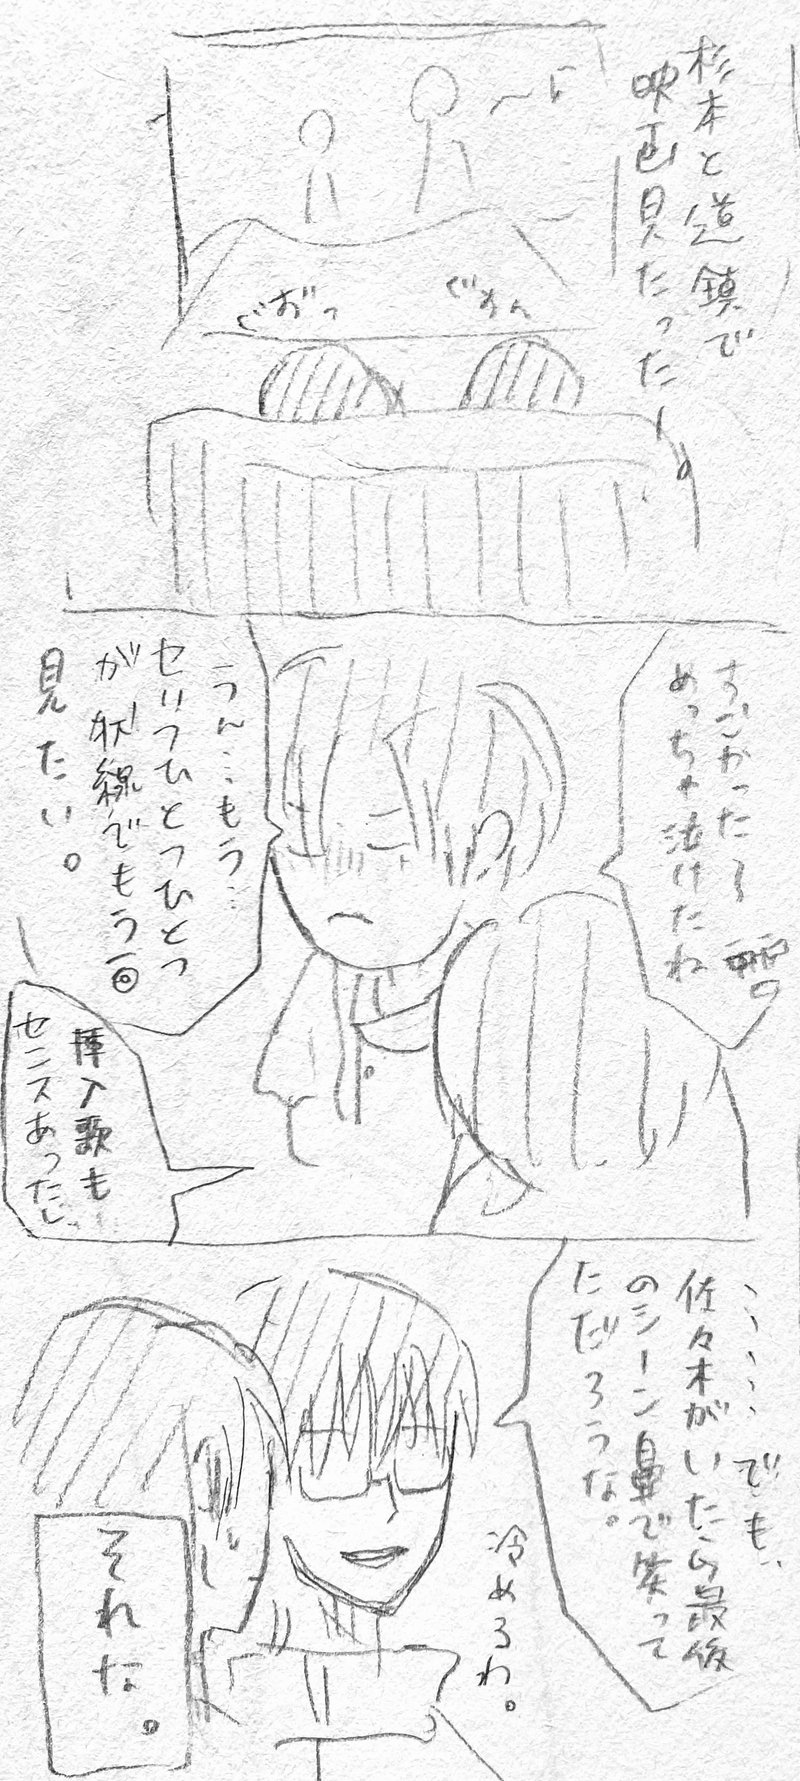 杉本と道鎮で
映画見たったー。
ぐすん
ぐおっ
すごかったろ
めっちゃ泣けたね
うん…もう…
セリフひとつひとつ
が伏線でもう一回
見たい。
挿入歌も
センスあったし、
……でも、
佐々木がいたら最後
のシーン鼻で笑って
ただろうな。
冷めるわ。
それな。